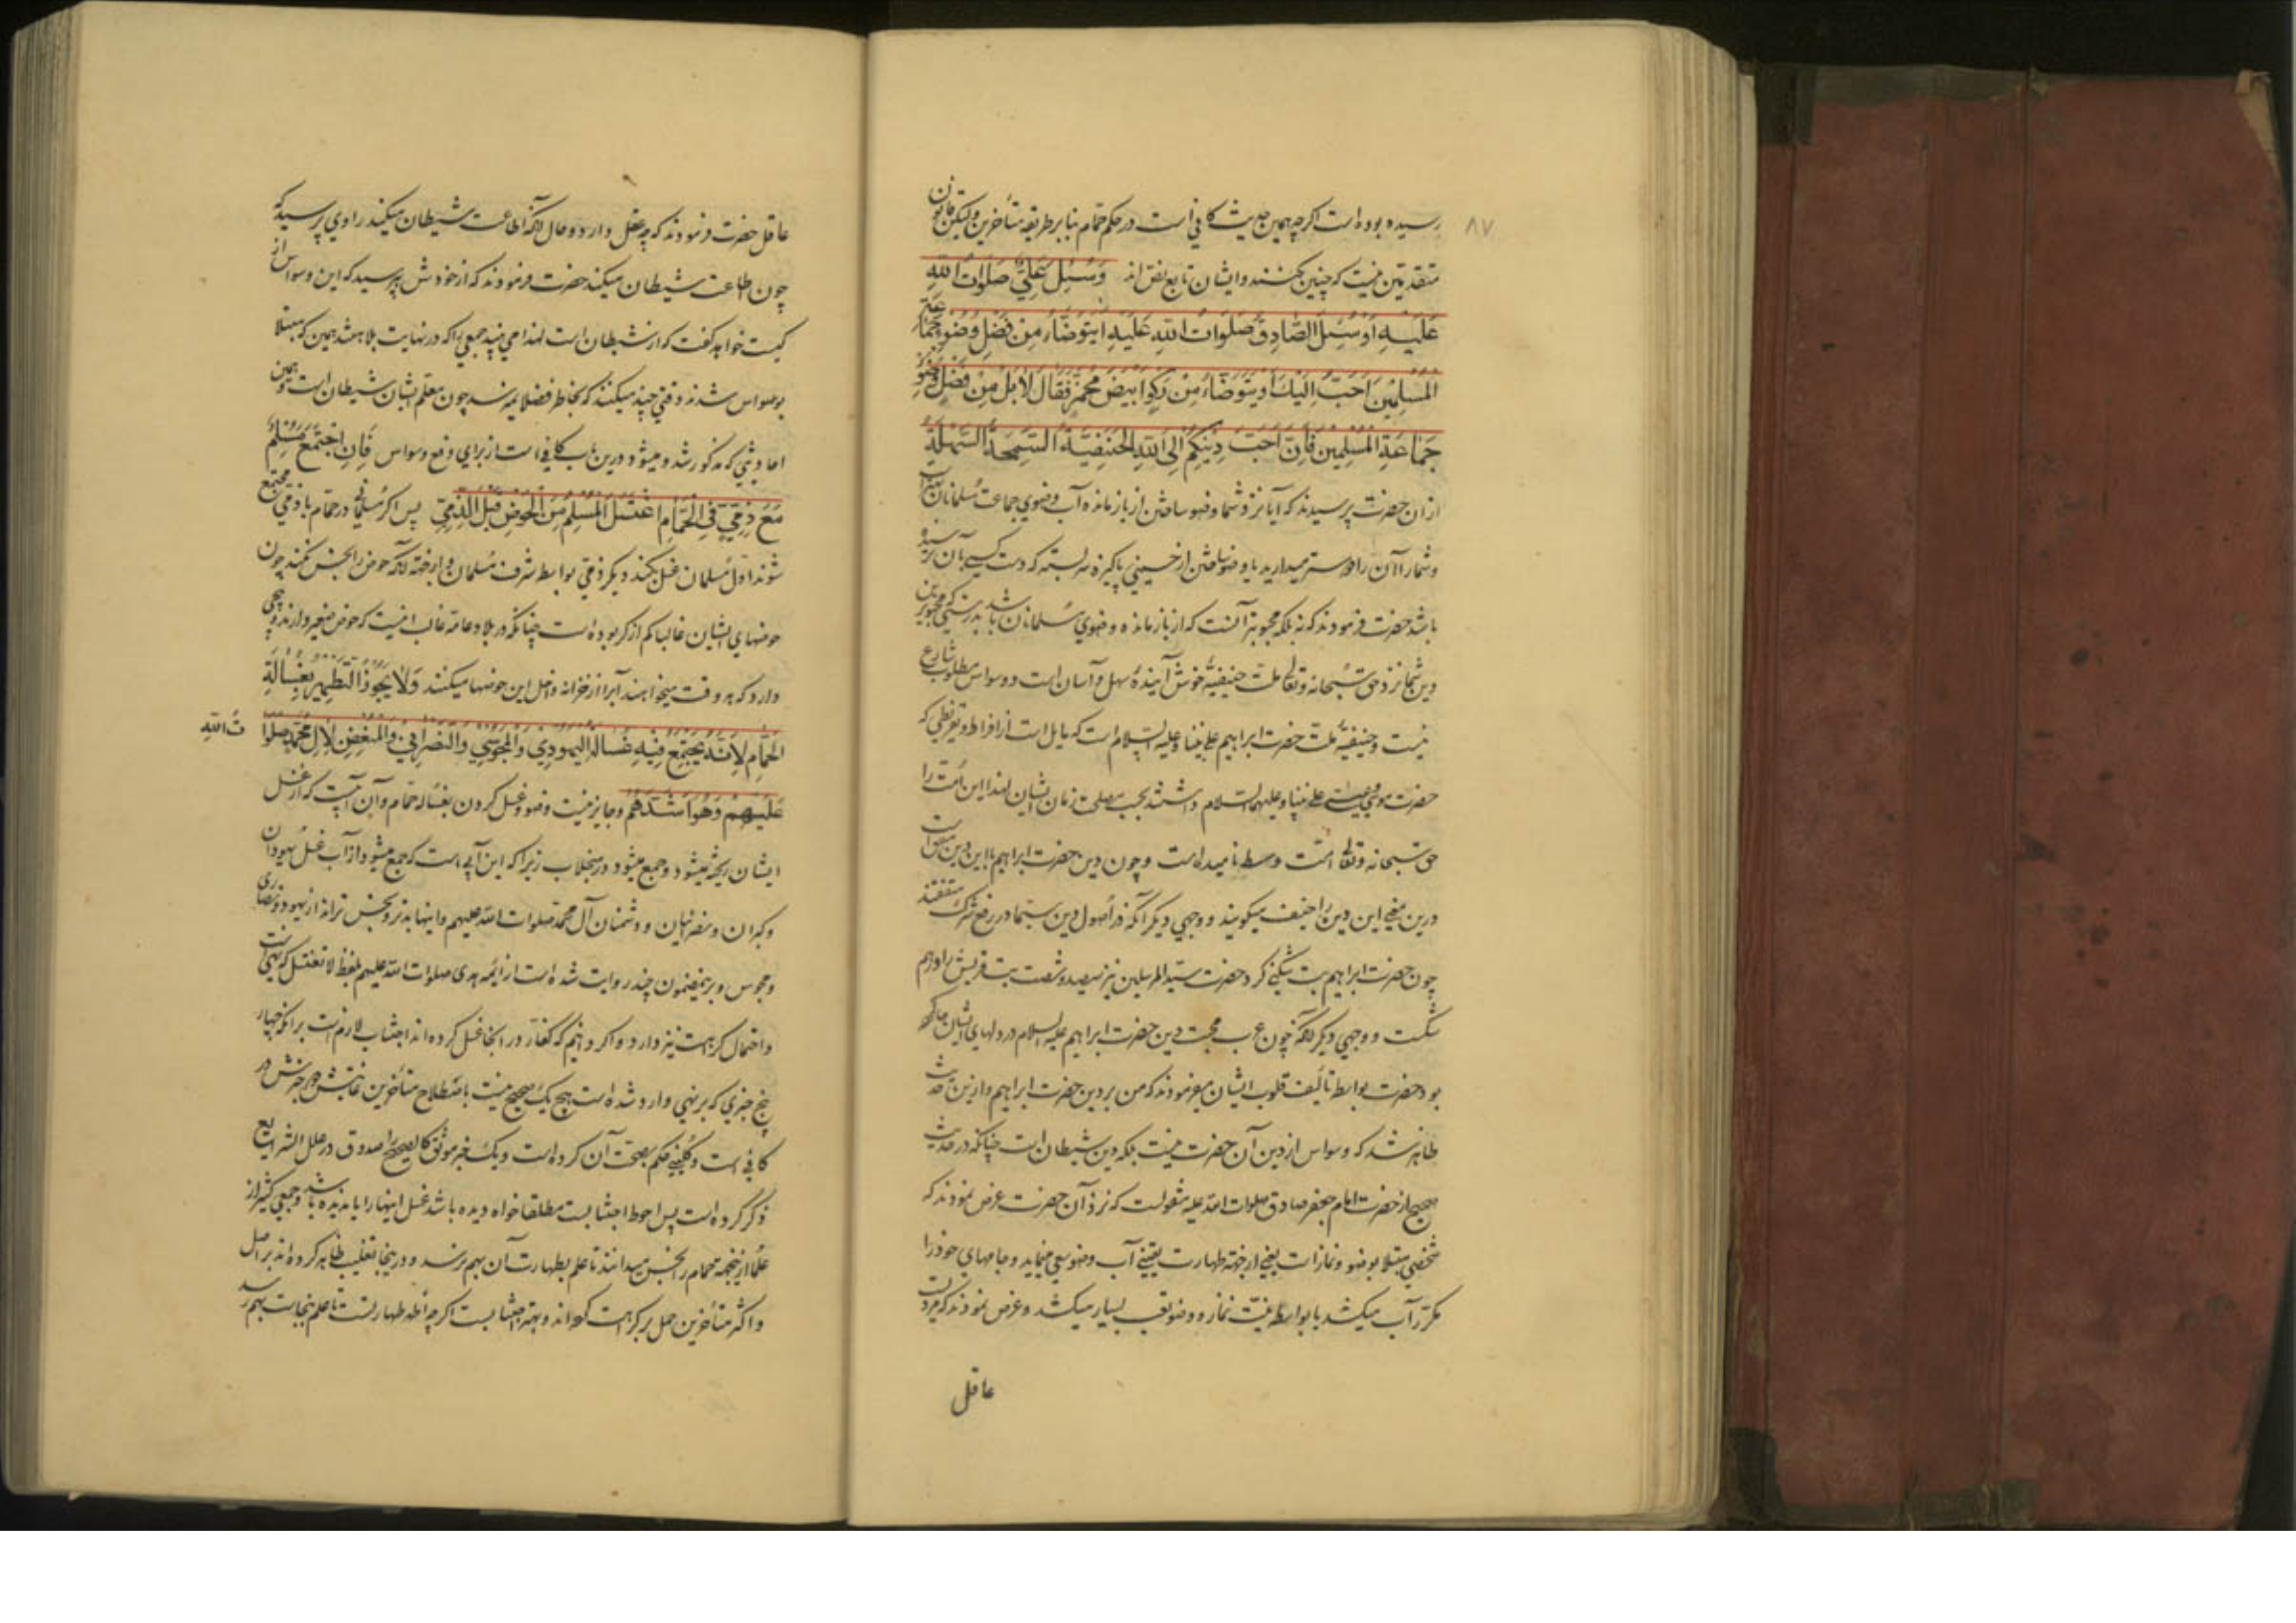 ۸۷
رسیده بوده است اگر چه همین حدیث کافی است در حکم حمام بنا بر طریقه متأخرین ولیکن قانون
متقدمین نیست که چنین کنند و ایشان تابع نص اند وَسُئِلَ عَلِيٌّ صَلَوَاتُ اللهِ
عَلَيْهِ اَوْ سُئِلَ الصَّادِقُ صَلَوَاتُ اللهِ عَلَيْهِ اَيُتَوَضَّأُ مِنْ فَضْلِ وُضُوءِ جَمَاعَةِ
الْمُسْلِمِينَ اَحَبُّ اِلَيْكَ اَوْ يُتَوَضَّأُ مِنْ رَكْوٍ اَبْيَضَ مُخَمَّرٍ فَقَالَ لَا بَلْ مِنْ فَضْلِ وُضُوءِ
جَمَاعَةِ الْمُسْلِمِينَ فَاِنَّ اَحَبَّ دِينِكُمْ اِلَى اللهِ الْحَنِيفِيَّةُ السَّمِحَةُ السَّهْلَةُ
از ان حضرت پرسیدند که آیا نزد شما وضو ساختن از باز مانده آب وضوی جماعت مسلمانان بهتر است
و شما آن را دوستر میدارید یا وضو ساختن از پاکیزه سر بسته که دست کسی بآن نرسیده
باشد حضرت فرمودند که نه بلکه محبوبتر آنست که از باز مانده وضوی مسلمانان باشد بدرستی که محبوبترین
دین شما نزد حق سبحانه و تعالی ملت حنیفیه خوش آینده سهل و آسان است و وسواس مطلوب شارع
نیست و حنیفیه ملت حضرت ابراهیم علی نبینا و علیه السلام است که مایل است از افراط و تفریطی که
حضرت موسی و عیسی علی نبینا و علیهما السلام داشتند بحسب مصلحت زمان ایشان لهذا این امت را
حق سبحانه و تعالی امت وسط نامیده است و چون دین حضرت ابراهیم با این دین موافق است
درین معنی این دین را حنیف میگویند و وجهی دیگر آنکه در اصول دین سیما در رفع شرک متفقند
چون حضرت ابراهیم بت شکنی کرد حضرت سید المرسلین نیز سیصد و شصت بت قریش را درهم
شکست و وجهی دیگر آنکه چون عرب محبت دین حضرت ابراهیم علیه السلام در دلهای ایشان جا کرده
بود حضرت بواسطه تألیف قلوب ایشان میفرمودند که من بر دین حضرت ابراهیم و ازین حدیث
ظاهر شد که وسواس از دین آن حضرت نیست بلکه دین شیطان است چنانکه در حدیث
صحیح از حضرت امام جعفر صادق صلوات الله علیه منقولست که نزد آن حضرت عرض نمودند که
شخصی مبتلا بوضو و نماز است یعنی از جهة طهارت یقینی آب وضو سعی مینماید و جامهای خود را
مکرر آب میکشد یا بواسطه نیت نماز و وضو تعب بسیار میکشد و عرض نمودند که مردیست
عاقل
عاقل حضرت فرمودند که چه عقل دارد و حال آنکه اطاعت شیطان میکند راوی پرسید که
چون اطاعت شیطان میکند حضرت فرمودند که از خودش بپرسید که این وسواس از
کیست خواهد گفت که از شیطان است لهذا می بیند جمعی را که در نهایت بلاهتند همین که مبتلا
بوسواس شدند دقتی چند میکنند که بخاطر فضلا نمیرسد چون معلم ایشان شیطان است و همین
احادیثی که مذکور شد و میشود درین باب کافی است از برای دفع وسواس فَاِنِ اجْتَمَعَ مُسْلِمٌ
مَعَ ذِمِّيٍّ فِي الْحَمَّامِ اغْتَسَلَ الْمُسْلِمُ مِنَ الْحَوْضِ قَبْلَ الذِّمِّيِّ پس اگر مسلمانی در حمام با ذمی مجتمع
شوند اول مسلمان غسل کند و دیگر ذمی بواسطه شرف مسلمان و از جهة آنکه حوض را نجس نکند چون
حوضهای ایشان غالبا کم از کر بوده است چنانکه در بلاد عامه غالب اینست که حوض صغیر دارند و پیچی
دارد که هر وقت میخواهند آب را از خزانه داخل این حوضها میکنند وَلَا يَجُوزُ التَّطْهِيرُ بِغُسَالَةِ
الْحَمَّامِ لِاَنَّهُ يَجْتَمِعُ فِيهِ غُسَالَةُ الْيَهُودِيِّ وَالْمَجُوسِيِّ وَالنَّصْرَانِيِّ وَالْمُبْغِضِ لِآلِ مُحَمَّدٍ صَلَوَا
تُ اللهِ
عَلَيْهِمْ وَهُوَ اَشَدُّهُمْ و جایز نیست وضو و غسل کردن بغساله حمام و آن آبیست که از غسل
ایشان ریخته میشود و جمع میشود در منجلاب زیرا که این آبی است که جمع میشود از آب غسل یهودان
و گبران و نصرانیان و دشمنان آل محمد صلوات الله علیهم و اینها بدتر و نجس تراند از یهود و نصاری
و مجوس و برین مضمون چند روایت شده است از ائمه هدی صلوات الله علیهم بلفظ لا تغتسل که نهی است
و احتمال کراهت نیز دارد و اگر دانیم که کفار در انجا غسل کرده اند اجتناب لازم است بر آنکه چهار
پنج خبری که بر نهی وارد شده است هیچ یک صحیح نیست باصطلاح متأخرین غایتش چهار خبرش در
کافی است و کلینی حکم بصحت آن کرده است و یک خبر موثق کالصحیح را صدوق در علل الشرایع
ذکر کرده است پس احوط اجتنابست مطلقا خواه دیده باشد غسل اینها را یا ندیده باشد و جمعی کثیر از
علما حمام را نجس میدانند تا علم بطهارت آن بهم رسد و درینجا تغلیب ظاهر کرده اند بر اصل
و اکثر متأخرین حمل بر کراهت کرده اند و بهتر اجتنابست اگر چه اظهر طهارتست تا علم بنجاست بهم رسد